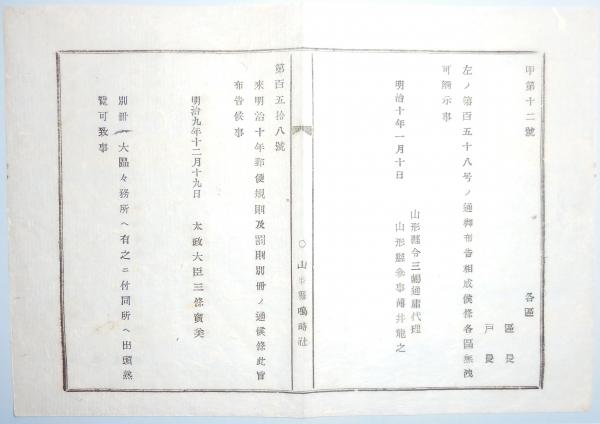 甲第十二號
各區
區長
戸長
左ノ第百五十八号ノ通御布告相成候條各區無洩
可觸示事
明治十年一月十日
山形縣令三島通庸代理
山形縣參事薄井龍之
○山形縣鳴時社
第百五拾八號
來明治十年郵便規則及罰則別冊ノ通候條此旨
布告候事
明治九年十二月十九日
太政大臣三條實美
別冊ハ大區々務所ヘ有之ニ付同所ヘ出頭熟
覽可致事